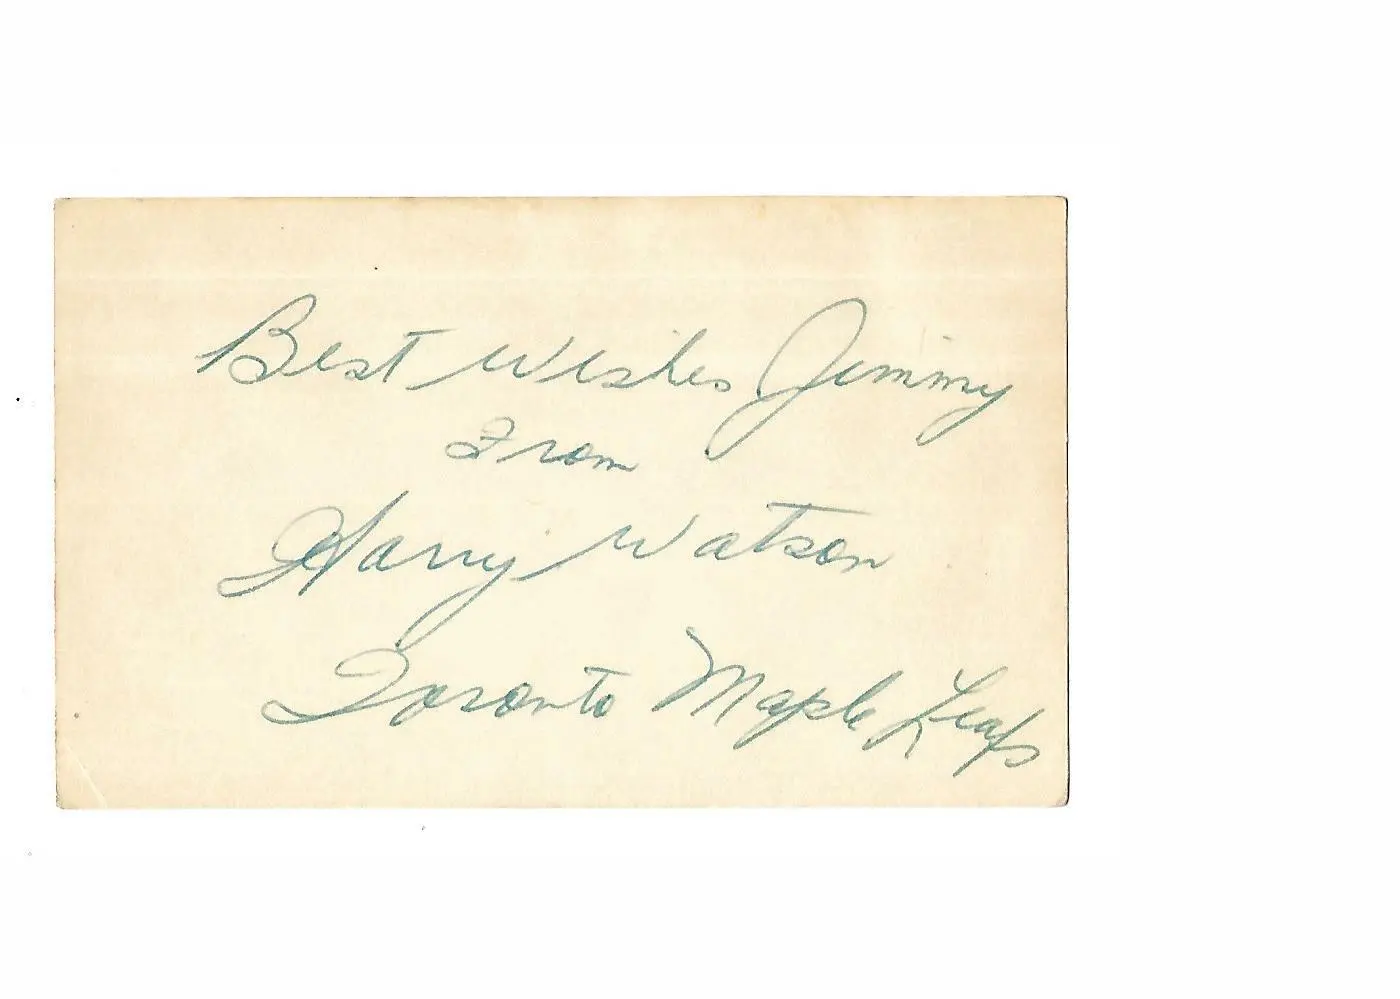 Best Wishes Jimmy
From
Harry Watson
Toronto Maple Leafs